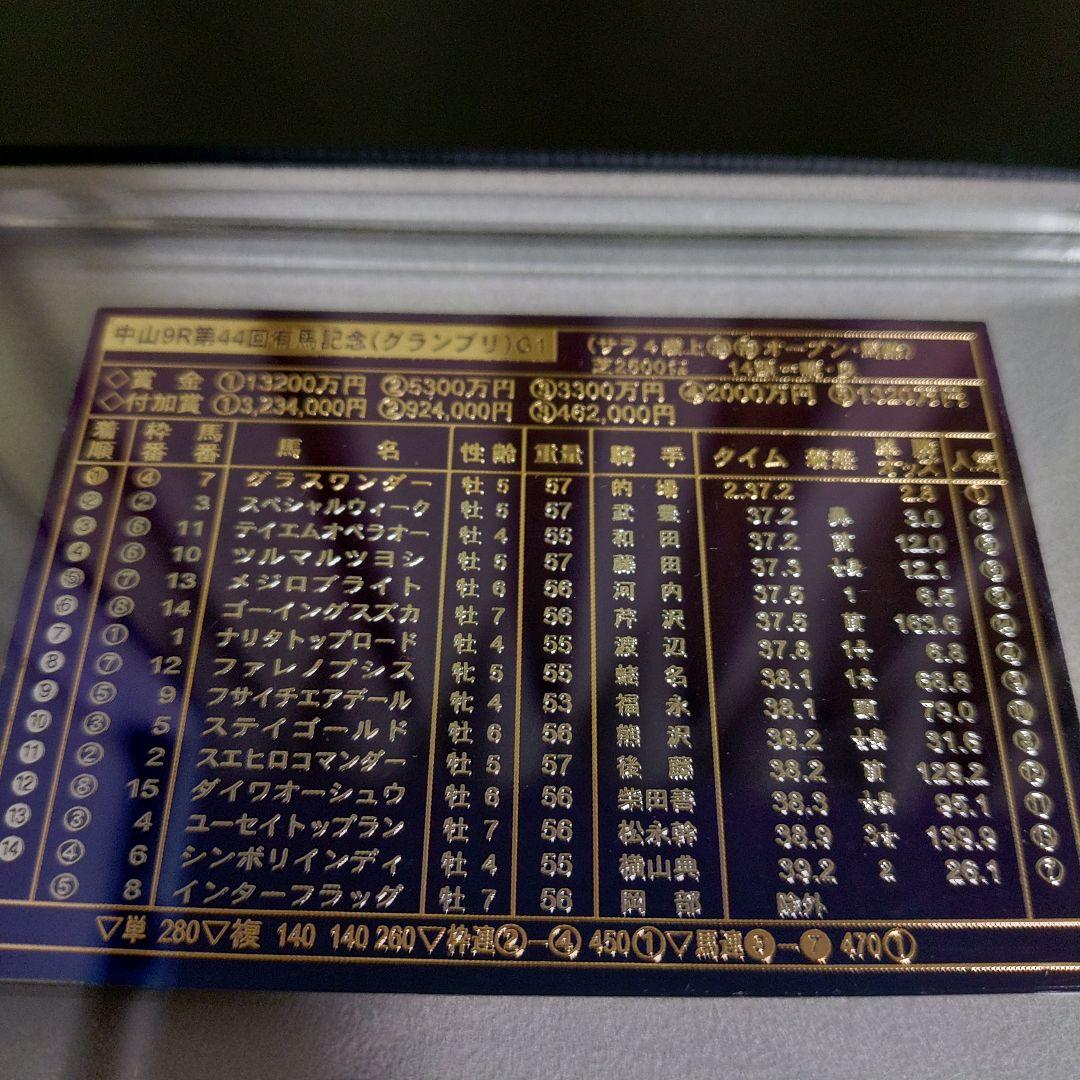 中山9R第44回有馬記念(グランプリ)G1
(サラ4歳上 オープン
芝2500㍍ 14
◇賞 金 ①13200万円 ②5300万円 ③3300万円 ④2000万円 ⑤1320万円
◇付加賞 ①3,234,000円 ②924,000円 ③462,000円
着順 枠番 馬番 馬 名 性齢 重量 騎 手 タイム 着差 オッズ 人気
❶ ④ 7 ダラスワンダー 牡5 57 的 場 2.37.2 2.8 ①
❷ ② 3 スペシャルウィーク 牡5 57 武 豊 37.2 鼻 3.0 ②
❸ ⑥ 11 テイエムオペラオー 牡4 55 和 田 37.2 首 12.0
❹ ⑥ 10 ツルマルツヨシ 牡5 57 藤 田 37.3 12.1
❺ ⑦ 13 メジロブライト 牡6 56 河 内 37.5 1 6.5
❻ ⑧ 14 ゴーイングスズカ 牡7 56 芹 沢 37.5 首 163.6 ⑭
❼ ① 1 ナリタトップロード 牡4 55 渡 辺 37.8 6.8
❽ ⑦ 12 ファレノプシス 牝5 55 蛯 名 38.1 68.8
❾ ⑤ 9 フサイチエアデール 牝4 53 福 永 38.1 頭 73.0 ⑩
❿ ③ 5 ステイゴールド 牡6 56 熊 沢 38.2 31.6 ⑧
⓫ ② 2 スエヒロコマンダー 牡5 57 後 藤 38.2 首 128.2 ⑫
⓬ ⑧ 15 ダイワオーシュウ 牡6 56 柴田善 38.3 95.1 ⑪
⓭ ③ 4 ユーセイトップラン 牡7 56 松永幹 38.9 139.9 ⑬
⓮ ④ 6 シンボリインディ 牡4 55 横山典 39.2 2 26.1 ⑦
⑤ 8 インターフラッグ 牡7 56 岡 部 除外
▽単 280▽複 140 140 260▽枠連②→④ 450①▽馬連❸→❼ 470①